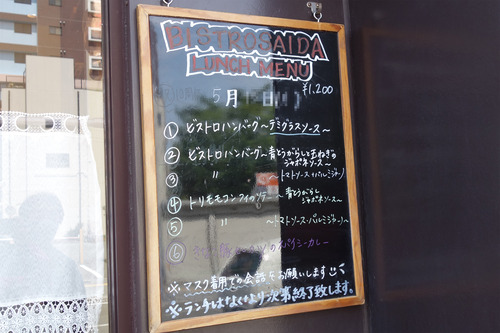 BISTROSAIDA
LUNCH MENU
¥1,200
5月 日( )
① ビストロハンバーグ〜デミグラスソース〜
② ビストロハンバーグ〜青とうがらしと玉ねぎの
ジャポネソース〜
③ 〃 〜トマトソース・パルミジャーノ〜
④ トリモモコンフィソテー〜青とうがらし
ジャポネソース〜
⑤ 〃 〜トマトソース・パルミジャーノ〜
⑥ スパイシーカレー
※マスク着用での会話をお願いします
※ランチはなくなり次第終了致します。